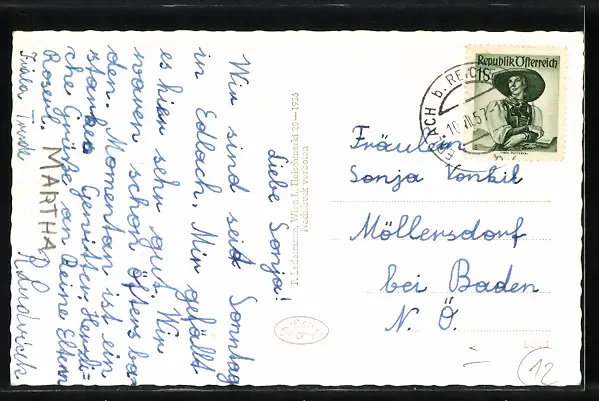 Liebe Sonja!
Wir sind seid Sonntag
in Edlach. Mir gefällt
es hier sehr gut. Wir
waren schon öfters ba=
den. Momentan ist ein
starkes Gewitter. Herzli=
che Grüße an Deine Eltern
MARTHA
P. Ledermann, Wien I., Fleischmarkt 20—1955
Nachdruck verboten
Republik Österreich
1S
b. REICH
Fräulein
Sonja
Möllersdorf
bei Baden
N. Ö.
12